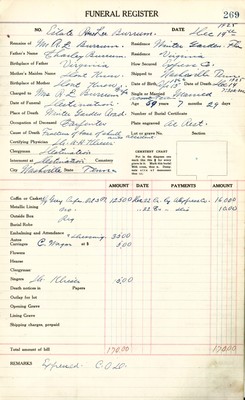 FUNERAL REGISTER 269
No. Date Dec 19th 1925
Remains of Mr. R. L. Burrum Residence Winter Garden Fla
Father's Name Charley Burrum Residence Virginia
Birthplace of Father Virginia How Conveyed Express Co.
Mother's Maiden Name Dont Know Shipped to Nashville Tenn
Birthplace of Mother Dont Know Date of Birth Date of Death Dec 14
Charged to Mrs R. L. Burrum Single or Married Married
Date of Funeral Destination Age 59 years 7 months 29 days
Place of Death Winter Garden Road Number of Burial Certificate
Occupation of Deceased Carpenter Plate engraved At Rest
Cause of Death Fracture of base of skull Lot or grave No. Section
Certifying Physician
Clergyman Destination
Interment at Destination Cemetery
City Nashville State Tenn
CEMETERY CHART
AMOUNT DATE PAYMENTS AMOUNT
Coffin or Casket 125.00 160.00
Metallic Lining 10.00
Outside Box
Burial Robe
Embalming and Attendance 35.00
Auto Carriages C. Wagon at $ 5.00
Flowers
Hearse
Clergyman
Singers 5.00
Death notices in Papers
Outlay for lot
Opening Grave
Lining Grave
Shipping charges, prepaid
Total amount of bill 170.00 170.00
REMARKS Expressed C.O.D.